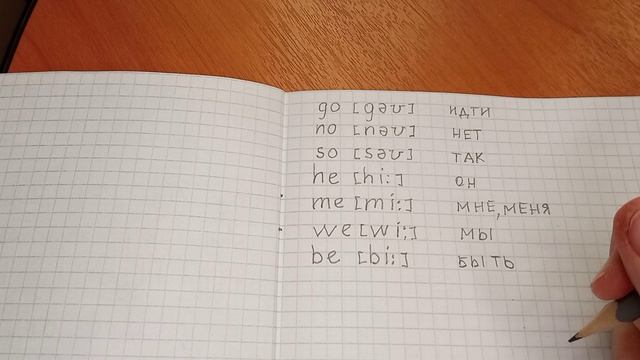 go [gəʊ] идти
no [nəʊ] нет
so [səʊ] так
he [hi:] он
me [mi:] мне, меня
we [wi:] мы
be [bi:] быть